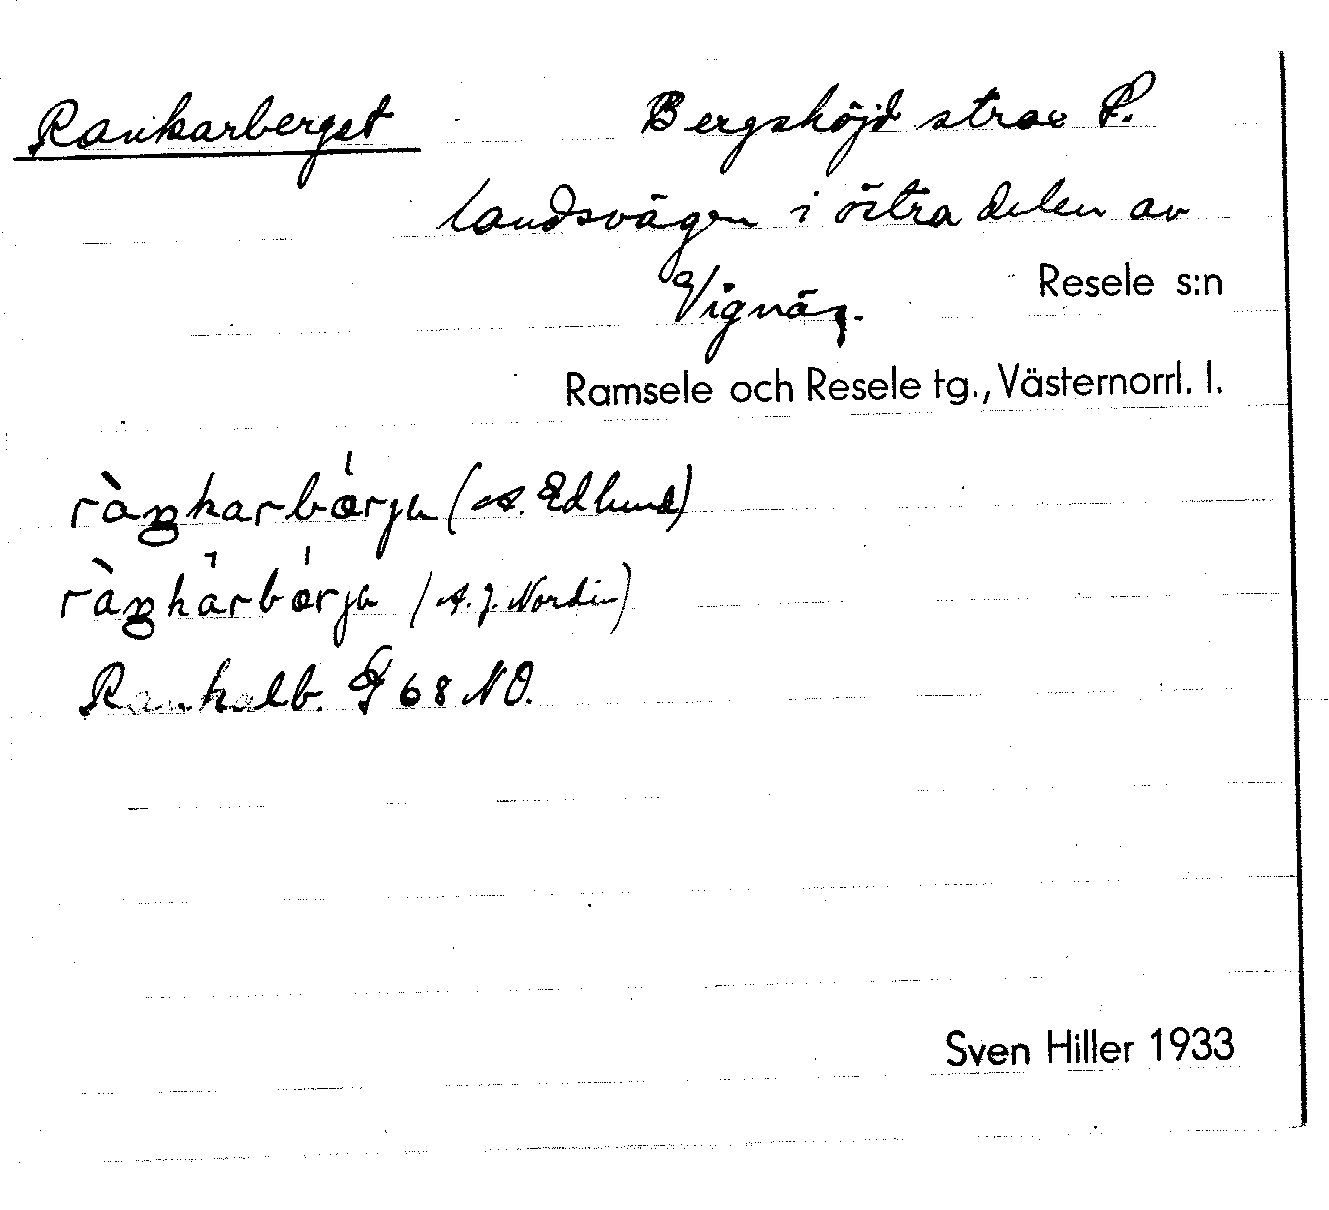 Rankarberget Bergshöjd strax S.
landsvägen i östra delen av
Vignäs.
Resele s:n
Ramsele och Resele tg., Västernorrl. l.
ràŋkarbǽrjɑ (A. Edlund)
ràŋkarbǽrjɑ (A. J. Nordin)
Rankalb. G 68 NO.
Sven Hiller 1933